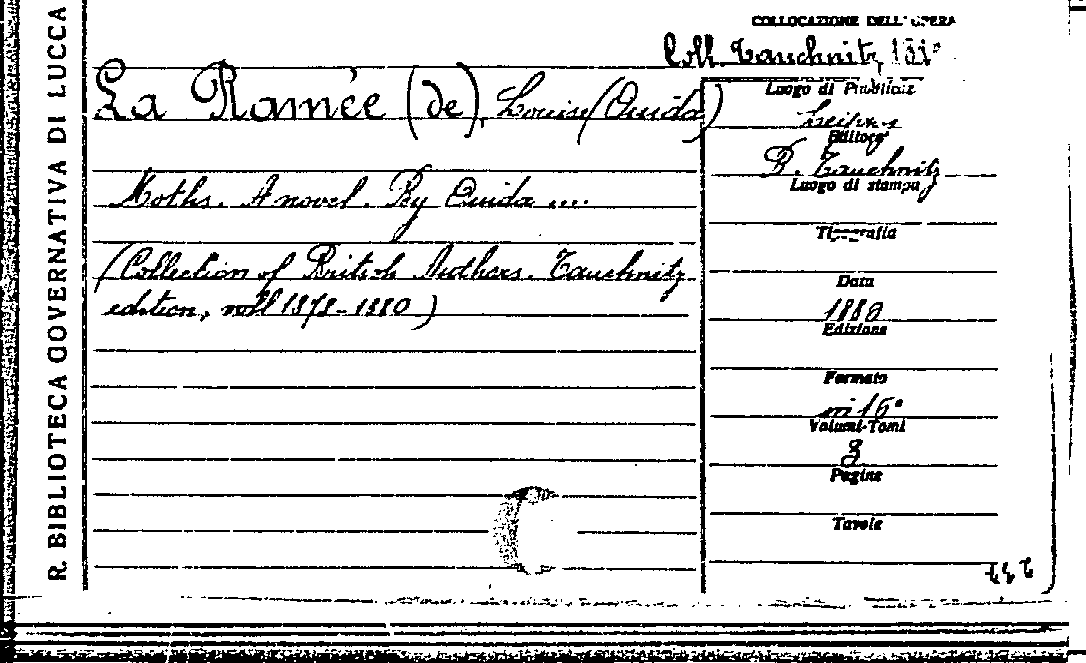 R. BIBLIOTECA GOVERNATIVA DI LUCCA
COLLOCAZIONE DELL'OPERA
Coll. Tauchnitz
La Ramée (de), Louise (Ouida)
Moths. A novel. By Ouida ....
(Collection of British Authors. Tauchnitz
edition, voll 1878-1880)
Luogo di Pubblicaz
Editore
B. Tauchnitz
Luogo di stampa
Tipografia
Data
1880
Edizione
Formato
in 16°
Volumi-Tomi
3
Pagine
Tavole